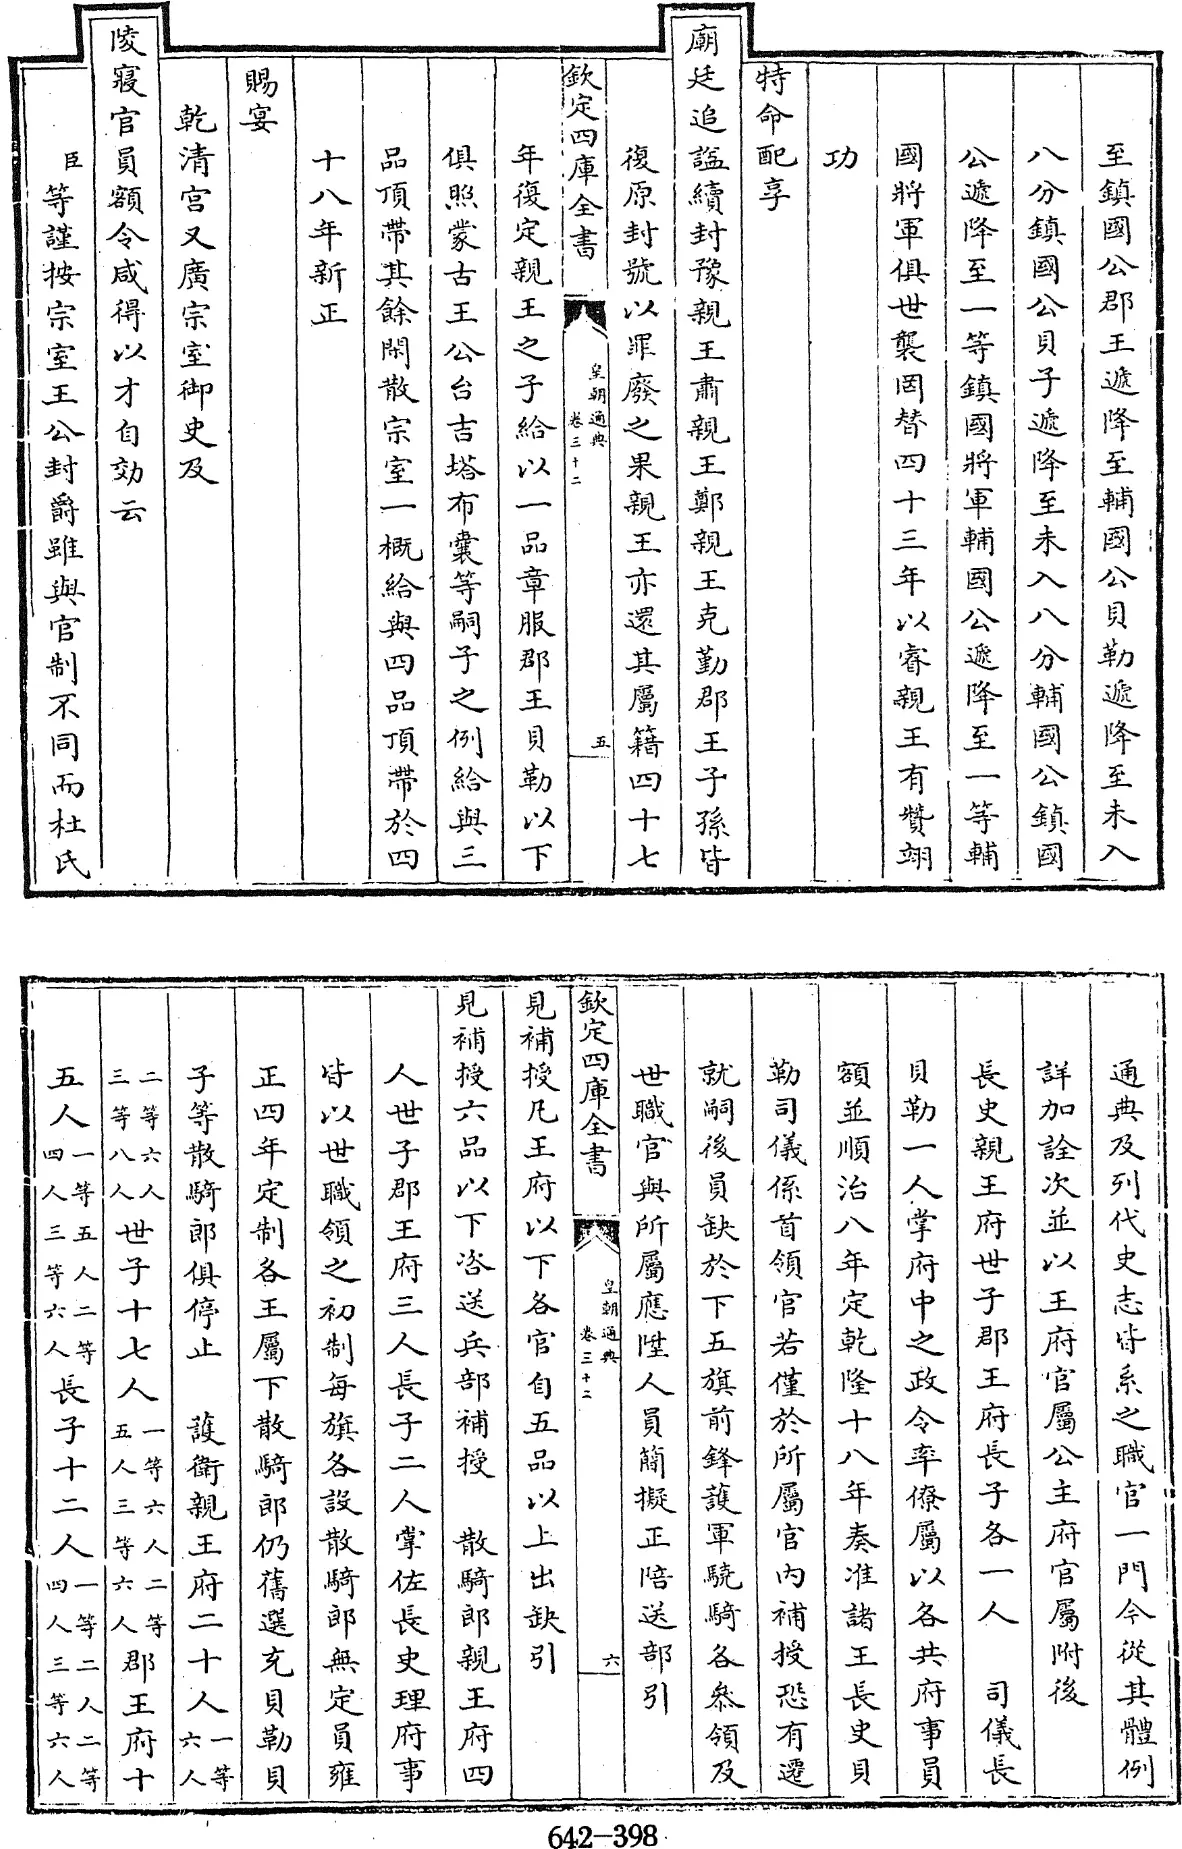 至鎮國公郡王遞降至輔國公貝勒遞降至未入
八分鎮國公貝子遞降至未入八分輔國公鎮國
公遞降至一等鎮國將軍輔國公遞降至一等輔
國將軍俱世襲罔替四十三年以睿親王有贊翊
功
特命配享
廟廷追諡續封豫親王肅親王鄭親王克勤郡王子孫皆
復原封號以罪廢之果親王亦還其屬籍四十七
欽定四庫全書
皇朝通典
卷三十二
五
年復定親王之子給以一品章服郡王貝勒以下
俱照蒙古王公台吉塔布囊等嗣子之例給與三
品頂帶其餘閑散宗室一概給與四品頂帶於四
十八年新正
賜宴
乾清宮又廣宗室御史及
陵寢官員額令咸得以才自効云
臣等謹按宗室王公封爵雖與官制不同而杜氏
通典及列代史志皆系之職官一門今從其體例
詳加詮次並以王府官屬公主府官屬附後
長史親王府世子郡王府長子各一人 司儀長
貝勒一人掌府中之政令率僚屬以各共府事員
額並順治八年定乾隆十八年奏准諸王長史貝
勒司儀係首領官若僅於所屬官內補授恐有遷
就嗣後員缺於下五旗前鋒護軍驍騎各叅領及
世職官與所屬應陞人員簡擬正陪送部引
欽定四庫全書
皇朝通典
卷三十二
六
見補授凡王府以下各官自五品以上出缺引
見補授六品以下咨送兵部補授 散騎郎親王府四
人世子郡王府三人長子二人掌佐長史理府事
皆以世職領之初制每旗各設散騎郎無定員雍
正四年定制各王屬下散騎郎仍舊選充貝勒貝
子等散騎郎俱停止 護衛親王府二十人一等六人
二等六人三等八人世子十七人一等六人二等五人三等六人郡王府十
五人一等五人二等四人三等六人長子十二人一等二人二等四人三等六人
642-398